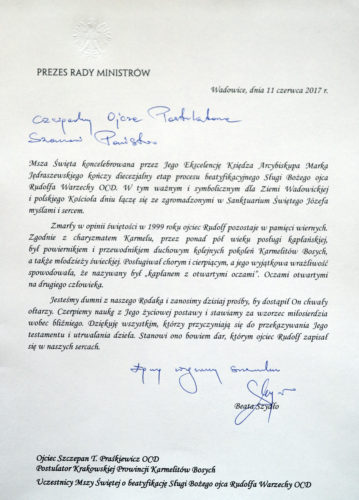 PREZES RADY MINISTRÓW
Wadowice, dnia 11 czerwca 2017 r.
Czcigodny Ojcze Postulatorze
Szanowni Państwo
Msza Święta koncelebrowana przez Jego Ekscelencję Księdza Arcybiskupa Marka
Jędraszewskiego kończy diecezjalny etap procesu beatyfikacyjnego Sługi Bożego ojca
Rudolfa Warzechy OCD. W tym ważnym i symbolicznym dla Ziemi Wadowickiej
i polskiego Kościoła dniu łączę się ze zgromadzonymi w Sanktuarium Świętego Józefa
myślami i sercem.
Zmarły w opinii świętości w 1999 roku ojciec Rudolf pozostaje w pamięci wiernych.
Zgodnie z charyzmatem Karmelu, przez ponad pół wieku posługi kapłańskiej,
był powiernikiem i przewodnikiem duchowym kolejnych pokoleń Karmelitów Bosych,
a także młodzieży świeckiej. Posługiwał chorym i cierpiącym, a jego wyjątkowa wrażliwość
spowodowała, że nazywany był „kapłanem z otwartymi oczami”. Oczami otwartymi
na drugiego człowieka.
Jesteśmy dumni z naszego Rodaka i zanosimy dzisiaj prośby, by dostąpił On chwały
ołtarzy. Czerpiemy naukę z Jego życiowej postawy i stawiamy za wzorzec miłosierdzia
wobec bliźniego. Dziękuję wszystkim, którzy przyczyniają się do przekazywania Jego
testamentu i utrwalania dzieła. Stanowi ono bowiem dar, którym ojciec Rudolf zapisał
się w naszych sercach.
Beata Szydło
Ojciec Szczepan T. Praśkiewicz OCD
Postulator Krakowskiej Prowincji Karmelitów Bosych
Uczestnicy Mszy Świętej o beatyfikację Sługi Bożego ojca Rudolfa Warzechy OCD